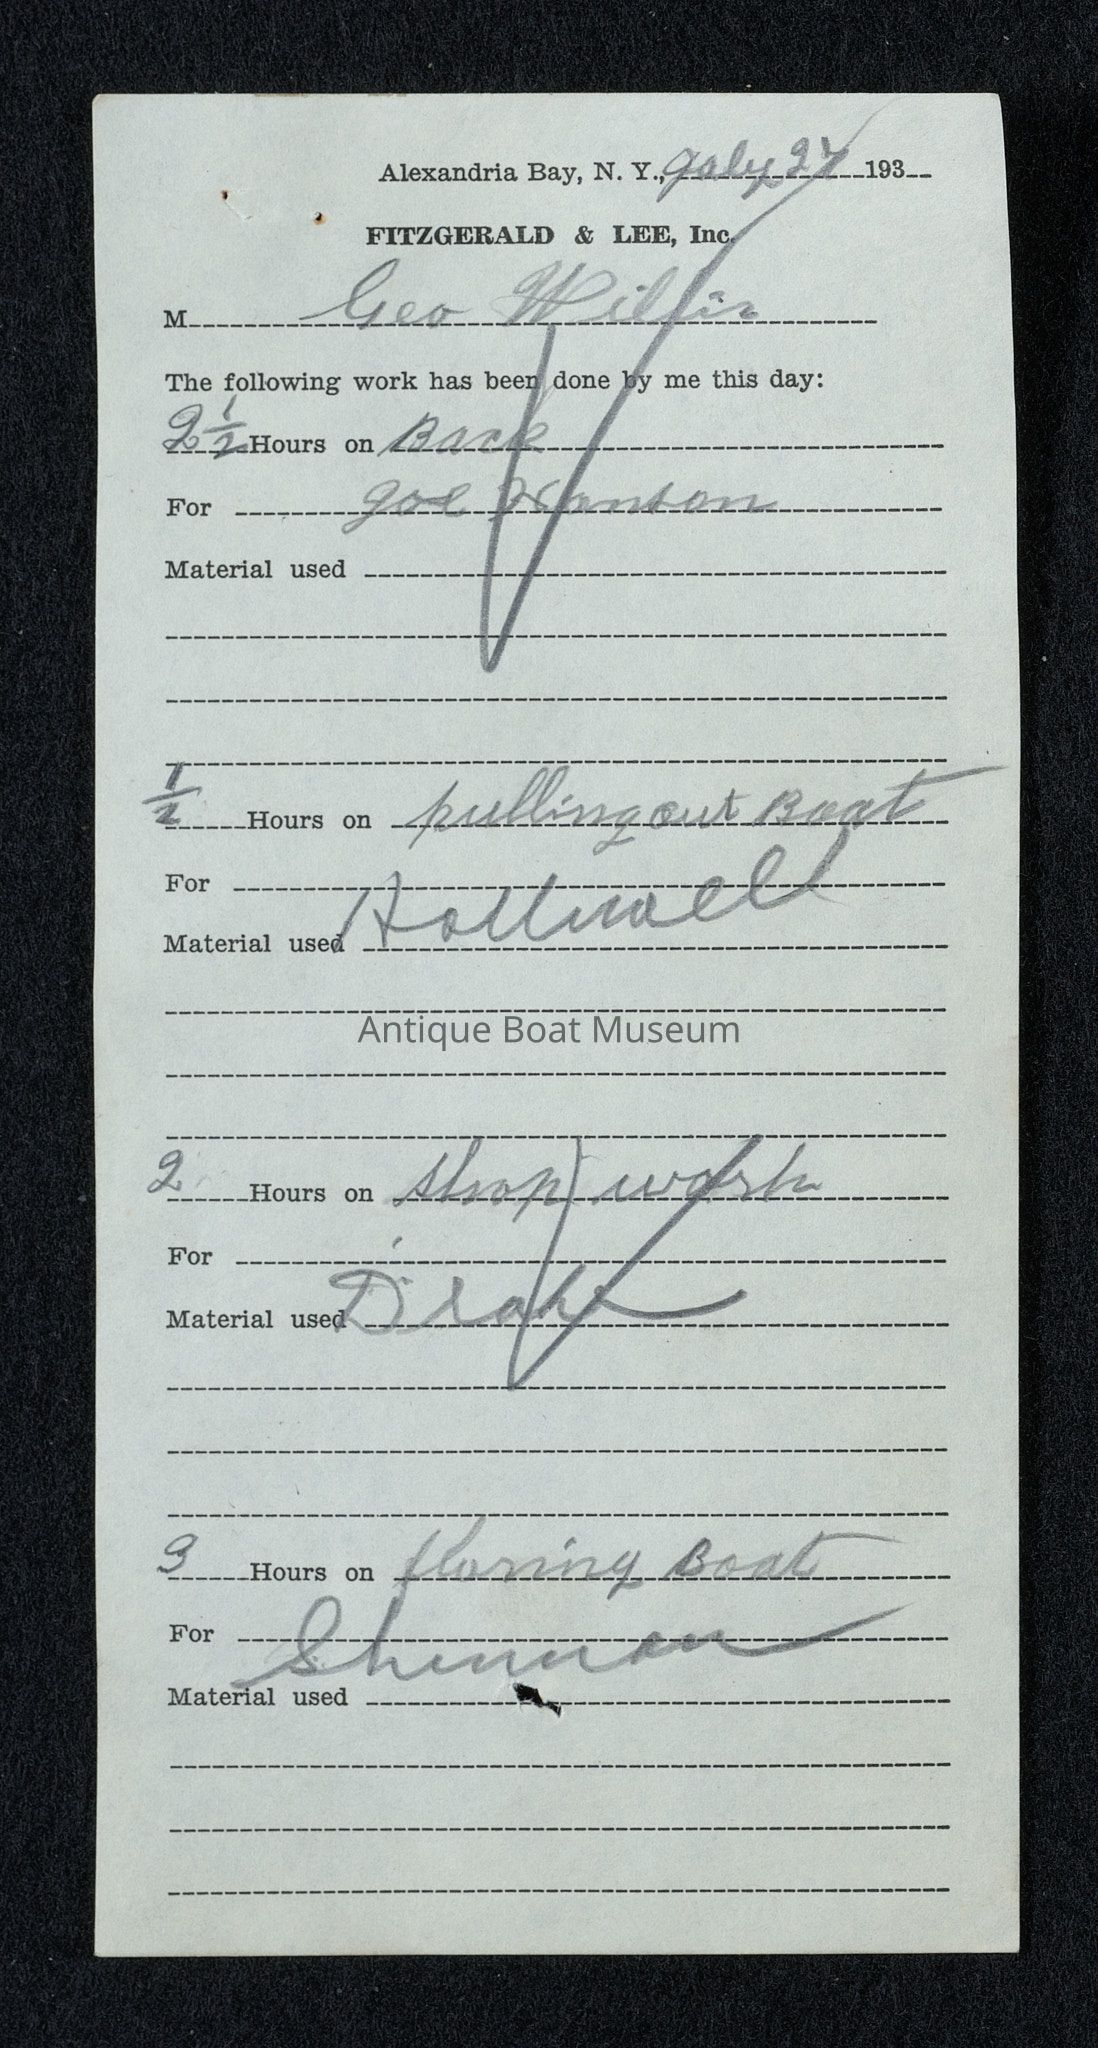 Alexandria Bay, N. Y., July 27 193
FITZGERALD & LEE, Inc.
M Geo
The following work has been done by me this day:
2 1/2 Hours on Back
For Joe
Material used
1/2 Hours on pulling out Boat
For
Material used Holliwell
Antique Boat Museum
2 Hours on shop work
For
Material used Drake
3 Hours on floring Boat
For
Material used